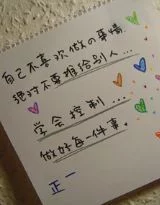 自己不喜欢做の事情
绝对不要推给别人...
学会控制...
做好每一件事
正一